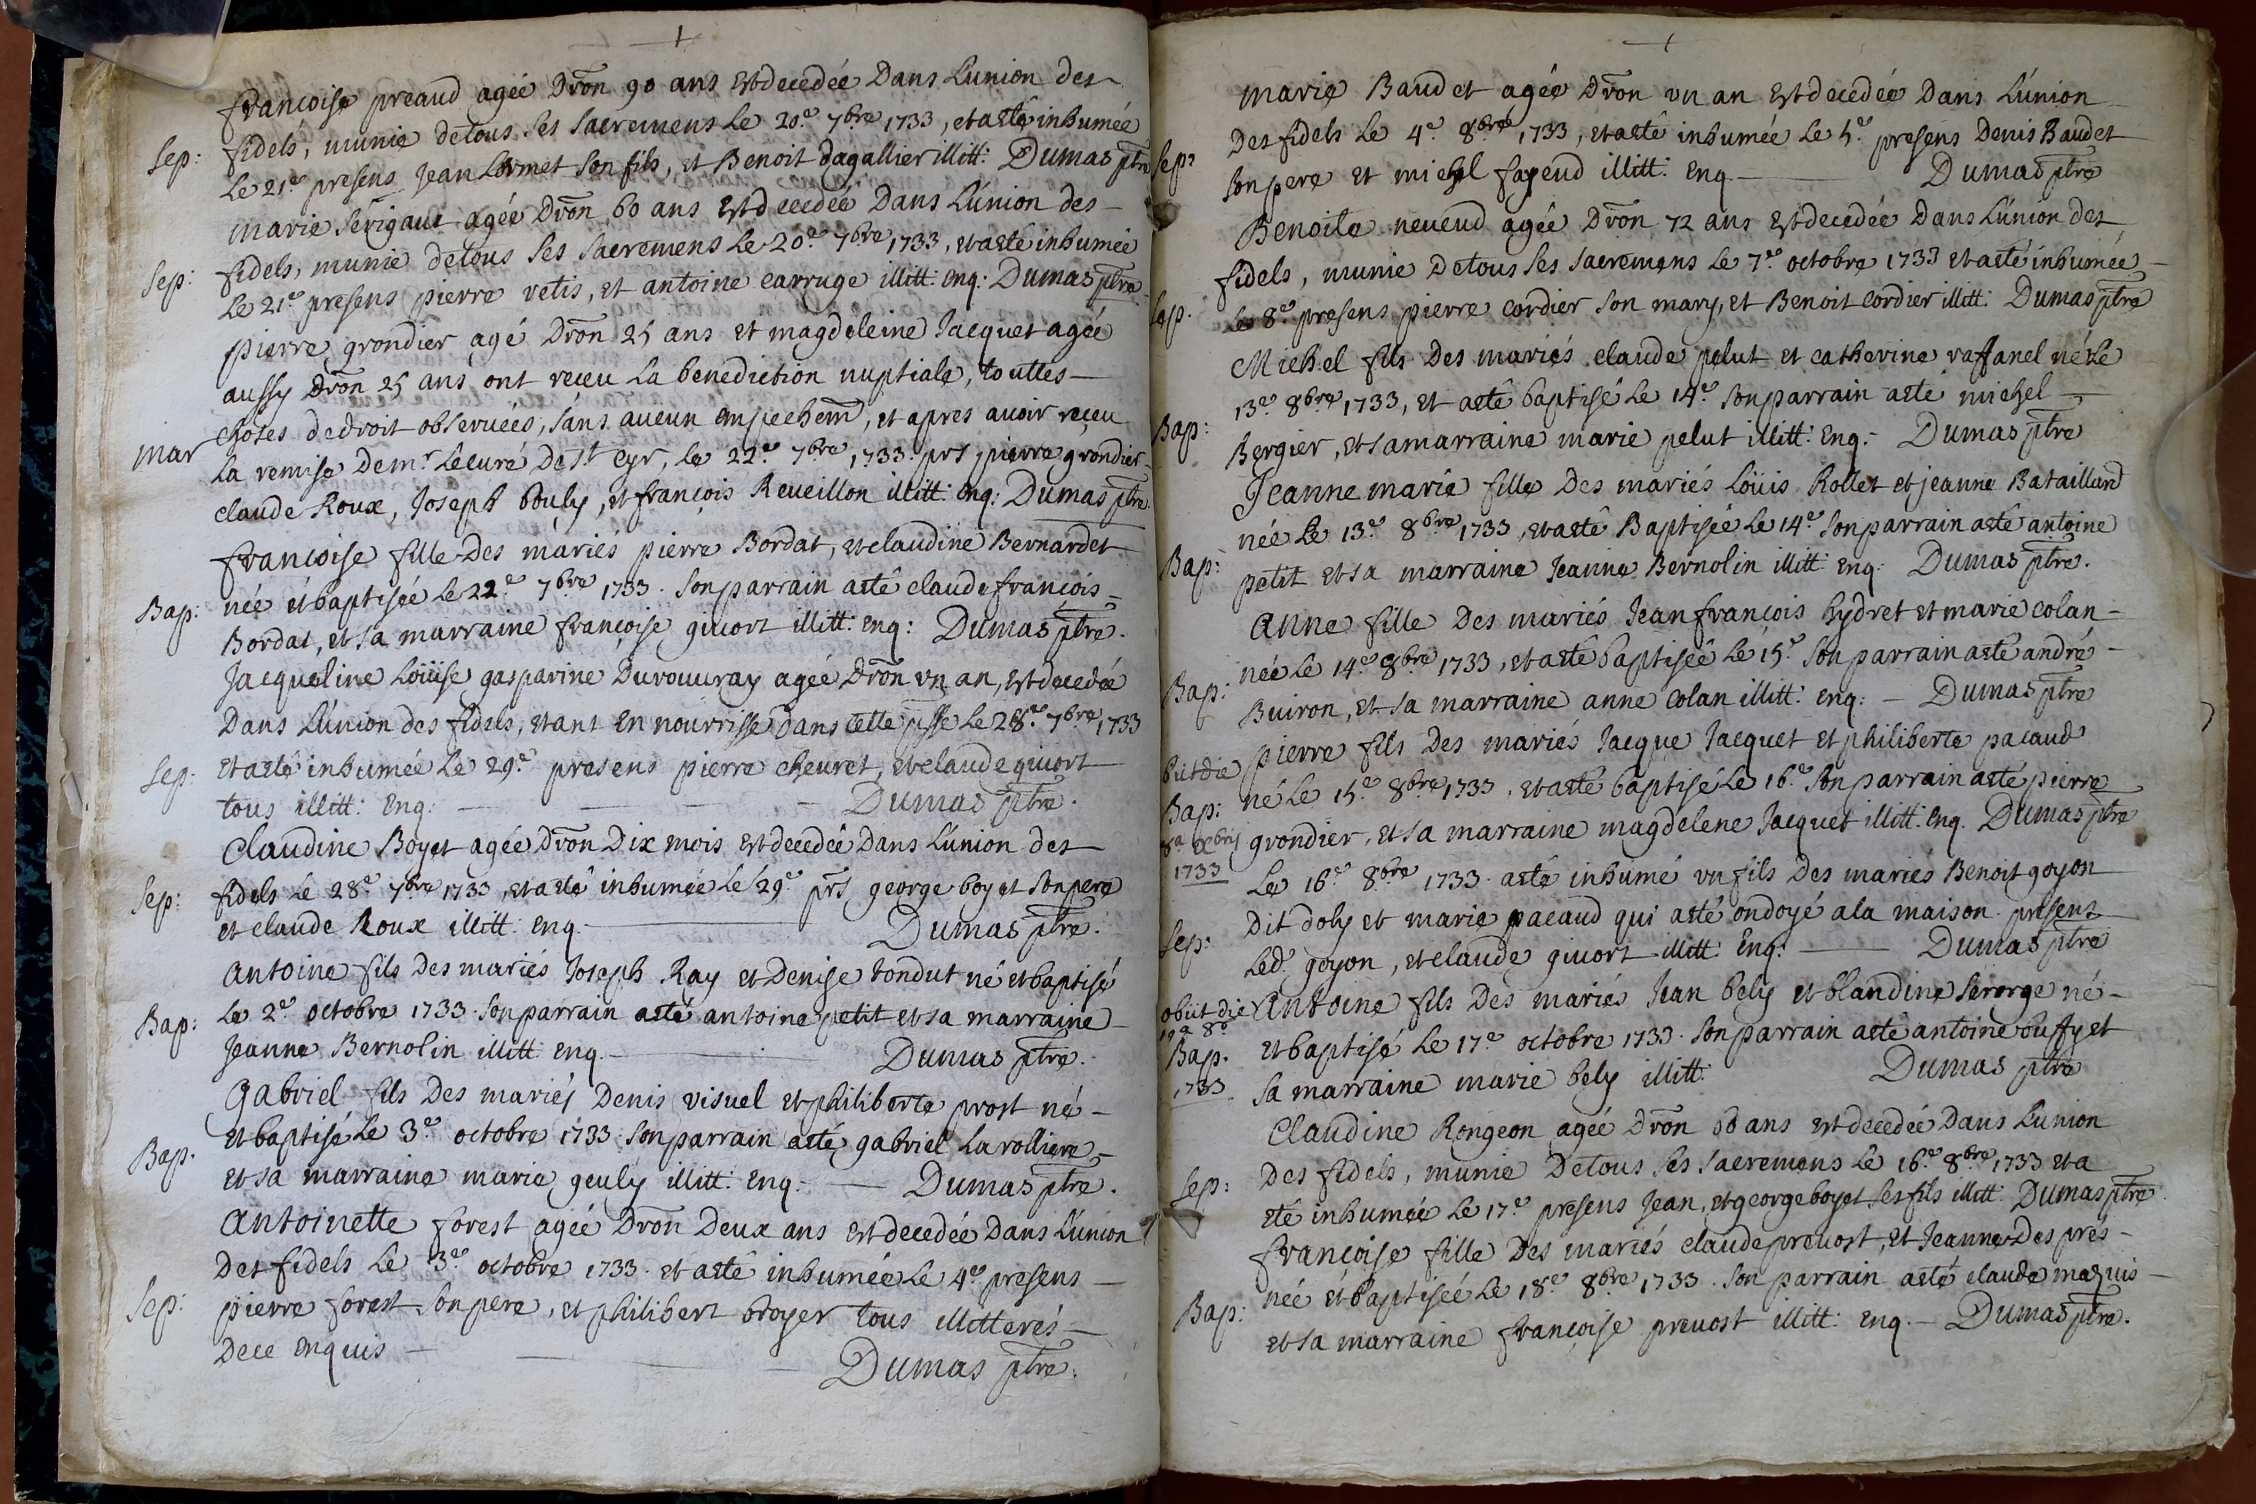 francoise preaud agée Dron 90 ans Est decedée Dans L'union des
Sep: fidels, munie de tous ses sacremens Le 20.e 7bre 1733, et a esté inhumée
Le 21.e presens Jean Lormet son fils, et Benoit dagallier illitt: Dumas ptre
marie serigaut agée Dron 60 ans Est decedée Dans L'union des
Sep: fidels, munie de tous ses sacremens Le 20.e 7bre 1733, et a esté inhumée
Le 21.e presens pierre vetis, et antoine carruge illitt: Enq: Dumas ptre
pierre grondier agé Dron 25 ans et magdeleine Jacquet agée
aussy Dron 25 ans ont receu La benediction nuptiale, touttes
choses de droit observées, sans aucun empechem, et apres avoir reçeu
mar La remise de mr Le curé De st Cyr, Le 22.e 7bre 1733. prs pierre grondier
claude Roux, Joseph bouly, et françois Reveillon illitt: Enq: Dumas ptre
francoise fille Des mariés pierre Bordat, et claudine Bernardet
Bap: née et baptisée Le 22.e 7bre 1733. son parrain a esté claude françois
Bordat, et sa marraine françoise givort illitt: Enq: Dumas ptre.
Jacqueline Loüise gasparine Durouvray agée Dron vn an, Est decedée
Dans L'union des fidels, etant En nourrisse Dans cette psse Le 28.e 7bre 1733
Sep: et a esté inhumée Le 29.e presens pierre chevret, et claude givort
tous illitt: Enq: Dumas ptre.
Claudine Boyet agée Dron Dix mois Est decedée Dans L'union des
Sep: fidels Le 28.e 7bre 1733, et a esté inhumée Le 29.e prs george boyet son pere
et claude Roux illitt: Enq. Dumas ptre.
antoine fils Des mariés Joseph Ray et Denise tondut né et baptisé
Bap: Le 2.e octobre 1733. son parrain a esté antoine petit et sa marraine
Jeanne Bernolin illitt: Enq. Dumas ptre.
Gabriel fils Des mariés Denis visuel et philiberte prost né
Bap. et baptisé Le 3.e octobre 1733. son parrain a esté gabriel La rolliere
et sa marraine marie geuly illitt: Enq: Dumas ptre.
Antoinette forest agée Dron Deux ans Est decedée Dans L'union
Des fidels Le 3.e octobre 1733. et a esté inhumée Le 4.e presens
Sep: pierre forest son pere, et philibert broyer tous illitterés
De ce Enquis Dumas ptre.
marie Baudet agée Dron vn an Est decedée Dans L'union
Sep: Des fidels Le 4.e 8bre 1733, et a esté inhumée Le 5.e presens Denis Baudet
son pere et michel fayend illitt: Enq. Dumas ptre
Benoite neveud agée Dron 72 ans Est decedée Dans L'union des
fidels, munie De tous ses sacremens Le 7.e octobre 1733 et a esté inhumée
Sep. Le 8.e presens pierre cordier son mary, et Benoit cordier illitt: Dumas ptre
Michel fils Des mariés claude pelut et catherine raffanel né Le
13.e 8bre 1733, et a esté baptisé Le 14.e son parrain a esté michel
Bap: Bergier, et sa marraine marie pelut illitt: Enq: Dumas ptre
Jeanne marie fille Des mariés Loüis Rollet et jeanne Bataillard
née Le 13.e 8bre 1733, et a esté Baptisée Le 14.e son parrain a esté antoine
Bap: petit et sa marraine Jeanne Bernolin illitt: Enq: Dumas ptre.
anne fille Des mariés Jean françois hydret et marie colan
née Le 14.e 8bre 1733, et a esté baptisée Le 15.e son parrain a esté andré
Bap: Buiron, et sa marraine anne Colan illitt: Enq: Dumas ptre
obiit die pierre fils Des mariés Jacque Jacquet et philiberte pacaud
Bap: né Le 15.e 8bre 1733, et a esté baptisé Le 16.e son parrain a esté pierre
8a xbris grondier, et sa marraine magdelene Jacquet illitt: Enq. Dumas ptre
1733 Le 16.e 8bre 1733. a esté inhumé vn fils Des mariés Benoit goyon
Sep: Dit doly et marie pacaud qui a esté ondoyé a la maison presens
Led. goyon, et claude givort illitt: Enq: Dumas ptre
obiit die antoine fils Des mariés Jean bely et blandine sererge né
19a 8e
Bap. et baptisé Le 17.e octobre 1733. son parrain a esté antoine buffy et
1733 sa marraine marie bely illitt: Dumas ptre
Claudine Rongeon agée Dron 60 ans Est decedée Dans L'union
Sep: Des fidels, munie De tous ses sacremens Le 16.e 8bre 1733 et a
esté inhumée Le 17.e presens Jean, et george boyet ses fils illitt: Dumas ptre
françoise fille Des mariés claude prevost, et Jeanne Des prés
Bap: née et baptisée Le 18.e 8bre 1733. son parrain a esté claude maquis
et sa marraine françoise prevost illitt: Enq. Dumas ptre.